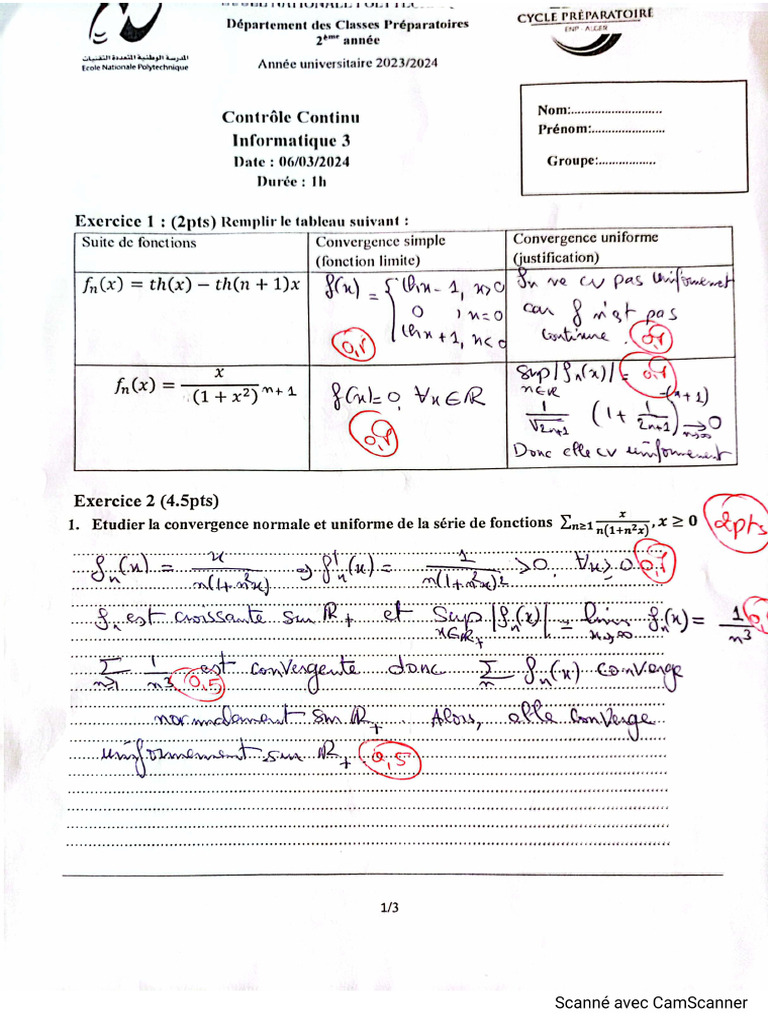 Département des Classes Préparatoires
2ème année
Année universitaire 2023/2024
المدرسة الوطنية المتعددة التقنيات
Ecole Nationale Polytechnique
CYCLE PRÉPARATOIRE
ENP - ALGER
Contrôle Continu
Informatique 3
Date : 06/03/2024
Durée : 1h
Nom:..........................
Prénom:.....................
Groupe:.................
Exercice 1 : (2pts) Remplir le tableau suivant :
Suite de fonctions
Convergence simple
(fonction limite)
Convergence uniforme
(justification)
fn(x) = th(x) − th(n + 1)x
f(x) = { thx - 1, x>0
0 , x=0
thx + 1, x<0
fn ne cv pas uniformement
car f n'est pas
continue.
fn(x) = x / (1 + x²)^n+1
f(x) = 0, ∀x ∈ ℝ
Sup |fn(x)| =
x∈ℝ
1/√2n+1 (1 + 1/2n+1)^-(n+1) → 0
n→∞
Donc elle cv uniformement
Exercice 2 (4.5pts)
1. Etudier la convergence normale et uniforme de la série de fonctions ∑n≥1 x/n(1+n²x), x ≥ 0
2pts
fn(x) = x/n(1+n²x) ⇒ f'n(x) = 1/n(1+n²x)² > 0, ∀x ≥ 0
fn est croissante sur ℝ+ et Sup |fn(x)| = lim fn(x) = 1/n³
x∈ℝ+ x→∞
∑ n≥1 1/n³ est convergente donc ∑ n fn(x) converge
0,5
normalement sur ℝ+. Alors, elle converge
uniformement sur ℝ+
0,5
1/3
Scanné avec CamScanner